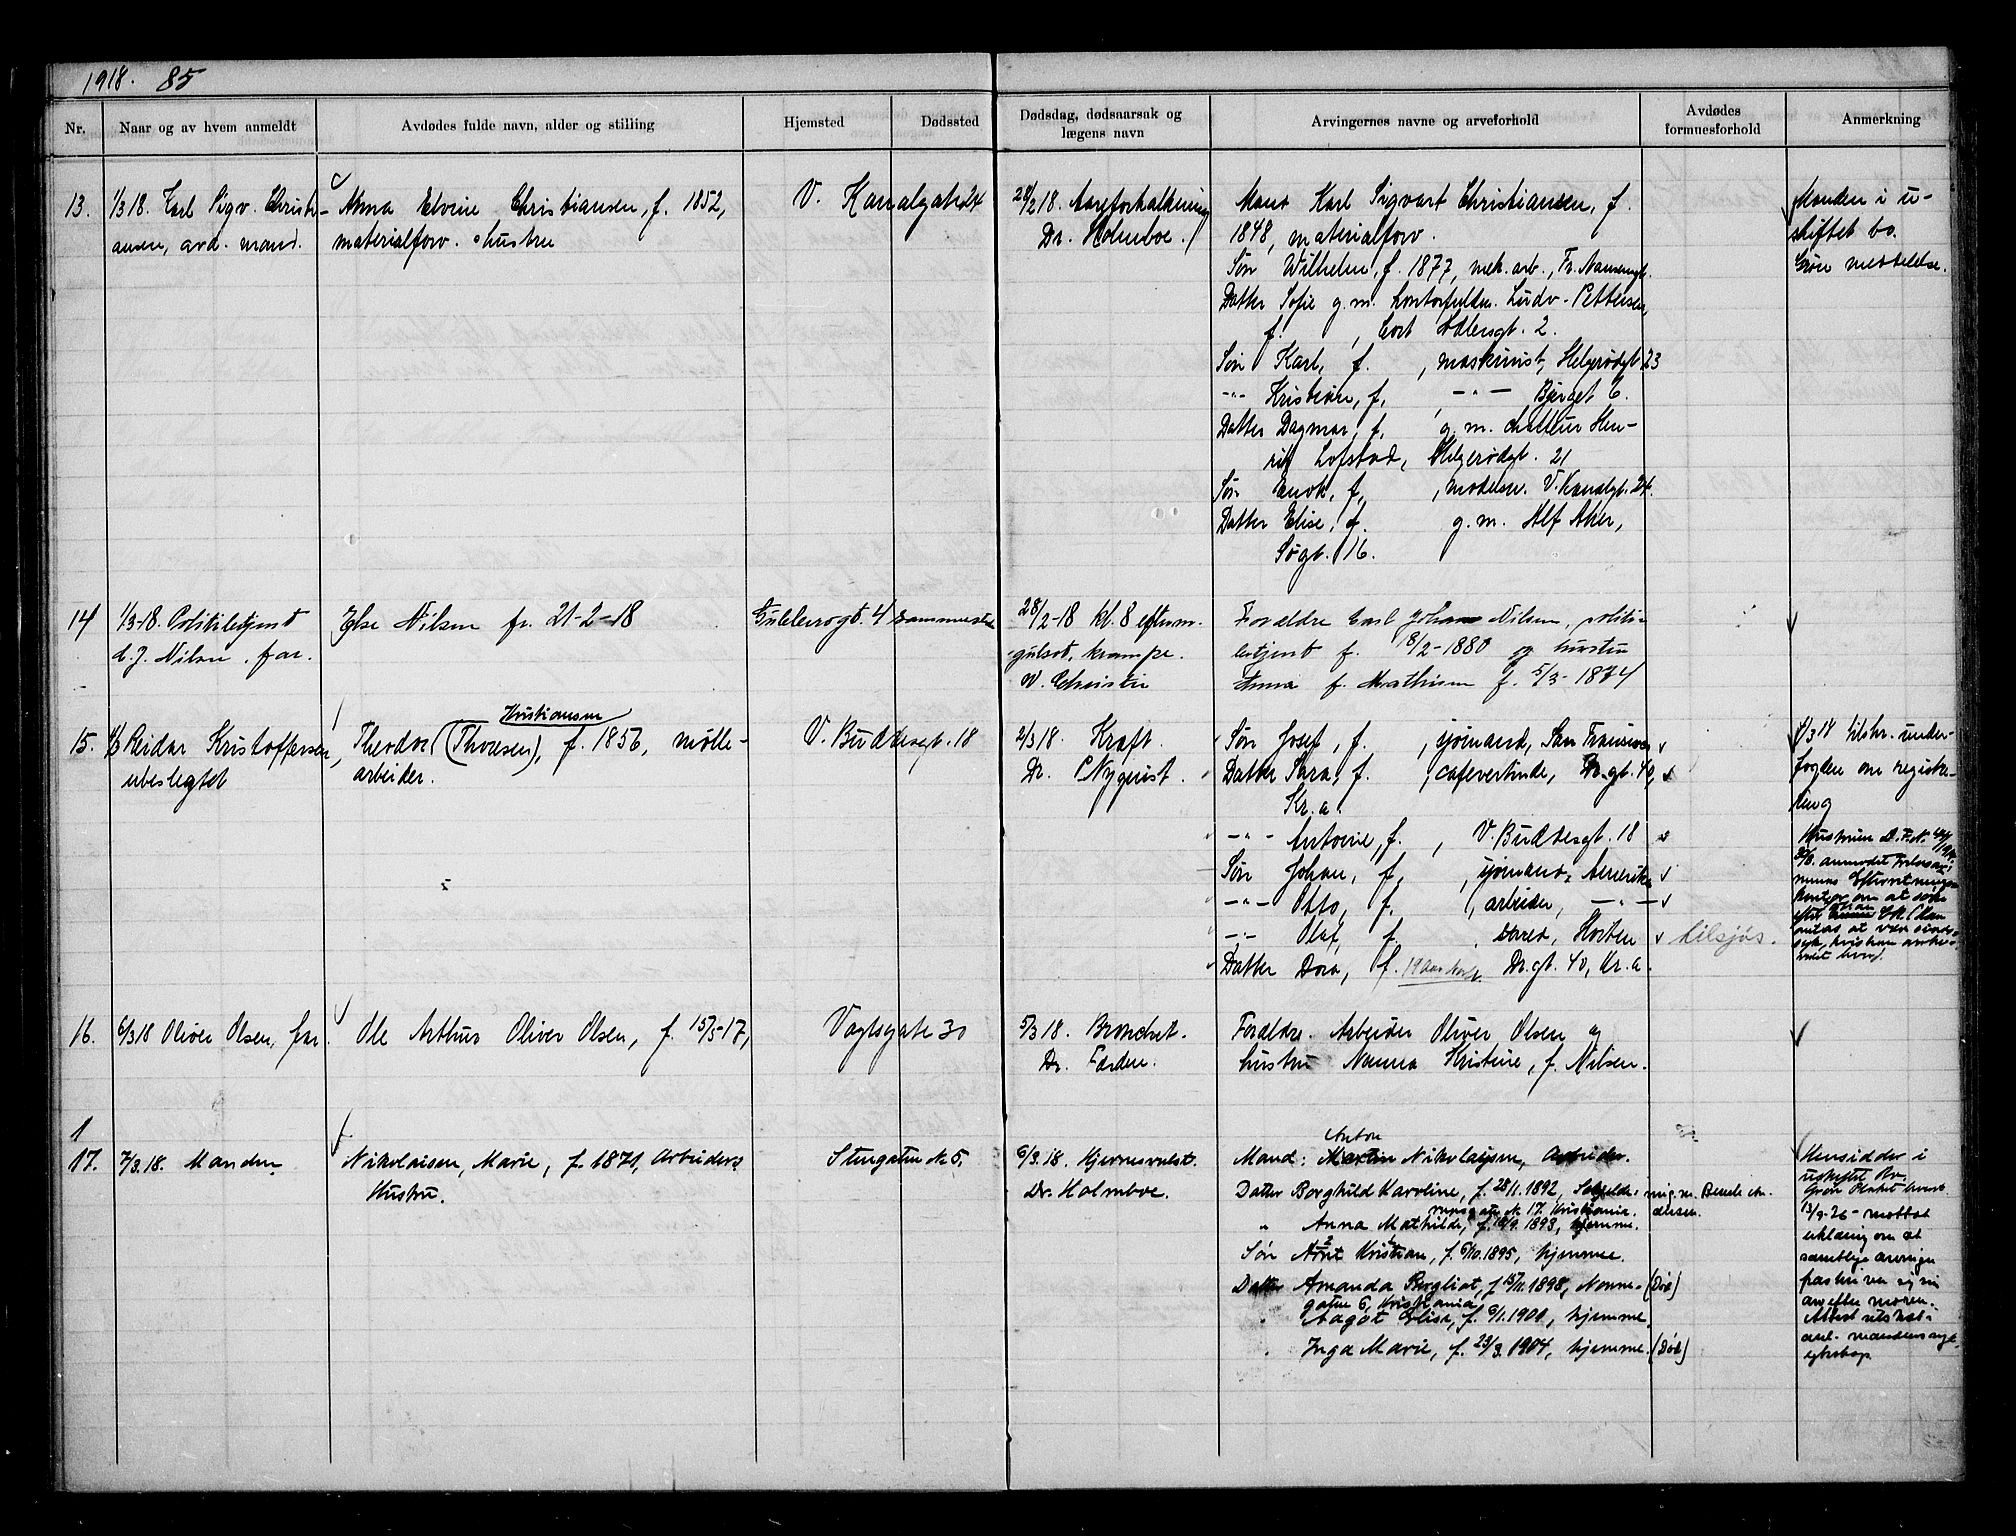 1918. 85
Nr.
Naar og av hvem anmeldt
Avdødes fulde navn, alder og stilling
Hjemsted
Dødssted
Dødsdag, dødsaarsak og
lægens navn
Arvingernes navne og arveforhold
Avdødes
formuesforhold
Anmerkning
13.
1/3 18. Karl Sigv. Christi-
ansen, avd. mand.
Alma Elvine Christiansen, f. 1852,
materialforv. hustru
V. Kanalgate 24
28/2 18. Aareforkalkning
Dr. Holmboe.
Mand Karl Sigvart Christiansen, f.
1848, materialforv.
Søn Wilhelm, f. 1877, mek. arb., Fr. Nansensgt.
Datter Sofie g.m. kontorfuldm. Ludv. Pettersen,
f. , Cort Adlersgt. 2.
Søn Karl, f. , maskinist, Helgerødgt. 23
-"- Kristian, f. , -"- Bjerget 6.
Datter Dagmar, f. , g.m. chaffeur Hen-
rik Lofstad, Helgerødgt. 21
Søn Enok, f. , modelsn. V. Kanalgt. 24.
Datter Elise, f. g.m. Alf Aker,
Søgt. 16.
Manden i u-
skiftet bo.
Grøn meddelelse.
14
1/3-18. Politibetjent
C. J. Nilsen, far.
Else Nilsen fr. 21-2-18
Guldkrogt. 4 sammested
28/2-18 kl. 8 efterm.
gulsot, krampe.
W. Christie
Forældre Carl Johan Nilsen, politi-
betjent f. 18/2-1880 og hustru
Anna f. Mathisen f. 5/3-1874
15.
Reidar Kristoffersen,
ubeslegtet
Kristiansen
Theodor (Thoresen), f. 1856, mølle-
arbeider.
V. Buddesgt. 18
2/3 18. Kraft.
Dr. Nyquist.
Søn Josef, f. , sjømand, San Fransisco
Datter Sara, f. , cafevertinde, Dr.gt. 40,
Kr.a.
-"- Antonie, f. , V. Buddesgt. 18
Søn Johan, f. , sjømand, Amerika
-"- Otto, f. , arbeider, -"-
-"- Olaf, f. , Horten
tilsjøs.
Datter Dora, f. 19 aar Dr.gt. 40, Kr.a.
tilskr. under-
fogden om registre-
ring
Hustruen
anmodet Frelsesar-
meens Efterretnings-
kontor om at søke
efter
16.
6/3 18 Oliver Olsen, far.
Ole Arthur Oliver Olsen, f. 15/5-17,
Vogtsgate 30
5/3 18. Bronchit.
Dr. Farden.
Forældre. Arbeider Oliver Olsen og
hustru Nanna Kristine, f. Nilsen.
1
17.
7/3. 18. Manden
Nikolaisen, Marie, f. 1871, Arbeiders
Hustru.
Stengaten No 5.
6/3. 18. Hjernesvulst.
Dr. Holmboe.
Anton
Mand: Martin Nikolaisen, Arbeider.
Datter Borghild Karoline, f. 28/11. 1892,
No 17. Kristiania.
" Anna Mathilde, f. 1893, hjemme.
Søn Arnt Kristian, f. 6/10. 1895, hjemme.
Datter Amanda Bergliot, f. 15/11. 1898, Nonne- (Død)
gaten 6, Kristiania
" Aagot Elise, f. 6/1. 1901, hjemme.
" Inga Marie, f. 23/3. 1904, hjemme. (Død)
Hensidder i
uskiftet Bo.
13/9-26 - mottat
erklæring om at
samtlige arvinger
fraskriver sig sin
arv efter moren.
Attest utstedt